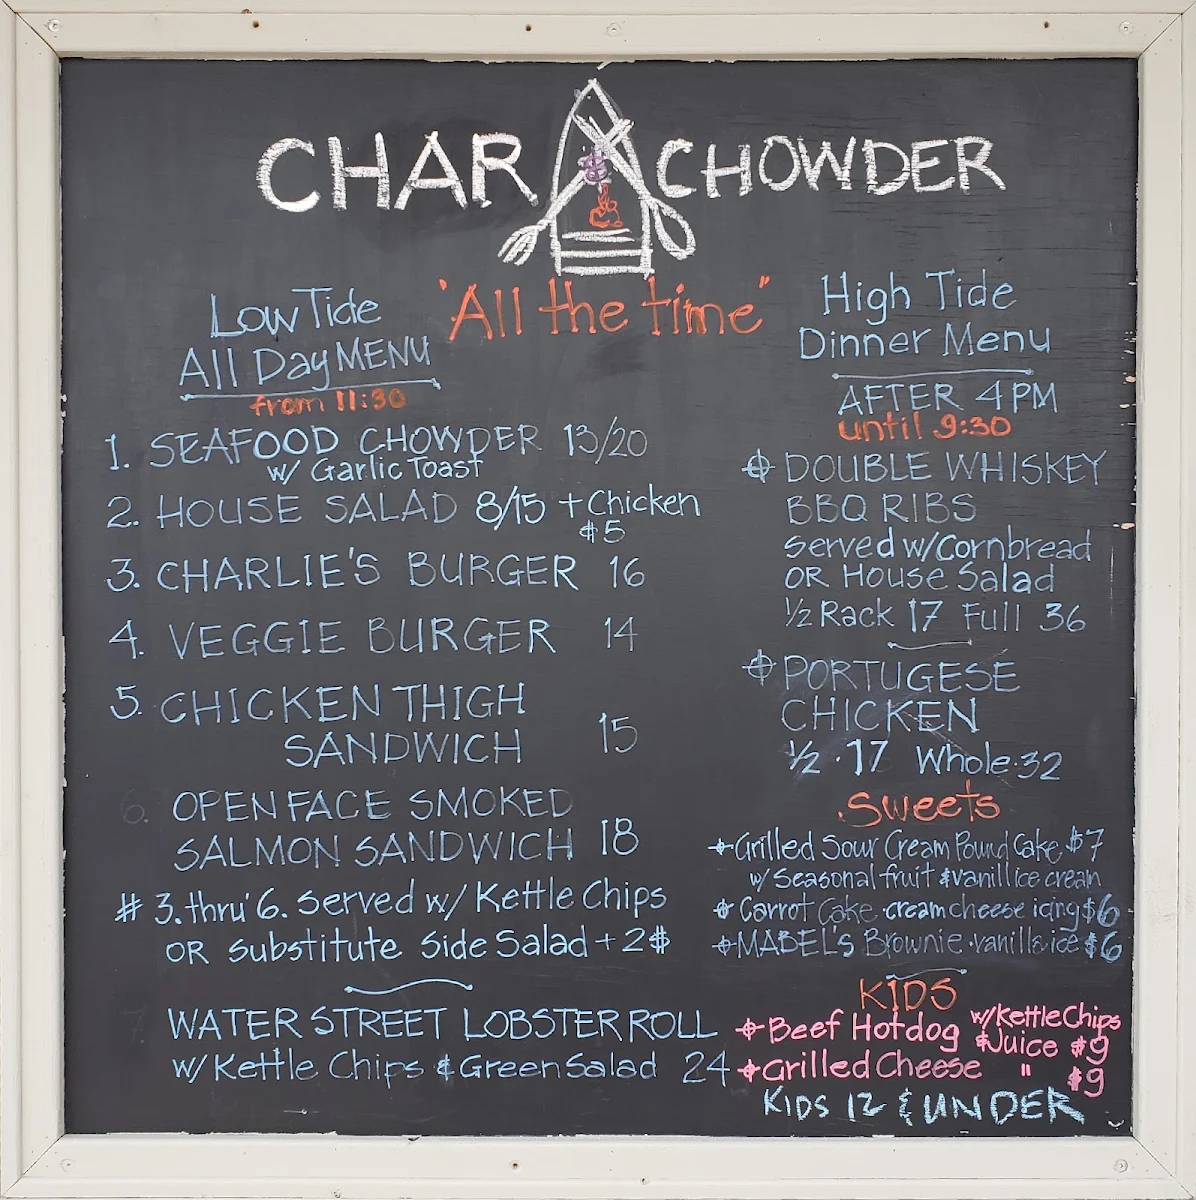 CHAR CHOWDER
"All the time"
Low Tide
All Day MENU
from 11:30
1. SEAFOOD CHOWDER 13/20
w/ Garlic Toast
2. HOUSE SALAD 8/15 + Chicken
$5
3. CHARLIE'S BURGER 16
4. VEGGIE BURGER 14
5. CHICKEN THIGH
SANDWICH 15
6. OPEN FACE SMOKED
SALMON SANDWICH 18
# 3. thru' 6. served w/ Kettle Chips
OR substitute Side Salad + 2$
WATER STREET LOBSTER ROLL
w/ Kettle Chips & Green Salad 24
High Tide
Dinner Menu
AFTER 4PM
until 9:30
DOUBLE WHISKEY
BBQ RIBS
served w/Cornbread
OR House Salad
½ Rack 17 Full 36
PORTUGESE
CHICKEN
½ · 17 Whole · 32
Sweets
Grilled Sour Cream Pound Cake $7
w/ Seasonal fruit & vanill ice cream
Carrot Cake · cream cheese icing $6
MABEL'S Brownie · vanilla ice $6
KIDS
Beef Hotdog w/Kettle Chips
& Juice $9
Grilled Cheese " $9
KIDS 12 & UNDER